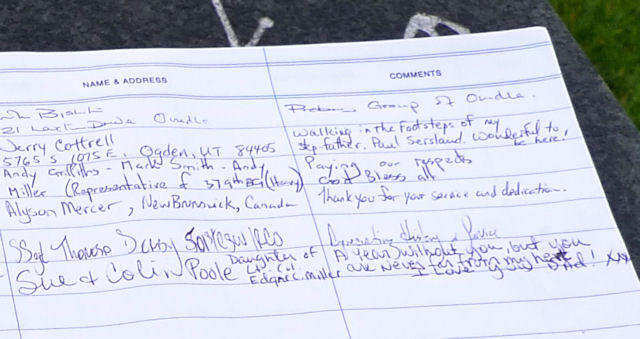 NAME & ADDRESS
COMMENTS
Group of Oundle.
21 Oundle
Jerry Cottrell
5765 S 1075 E. Ogden, UT 84405
Walking in the footsteps of my
step-father, Paul Sersland. Wonderful to
be here!
Andy Griffiths - Mark Smith - Andy
Miller (Representative of 379th BG (Heavy)
Paying our respects
God Bless all
Alyson Mercer, New Brunswick, Canada
Thank you for your service and dedication.
SSgt Thomas
Sue & Colin Poole Daughter of
Lt. Col
Edgar C. Miller
A year without you, but you
are never far from my heart
I Love you Dad! xxx